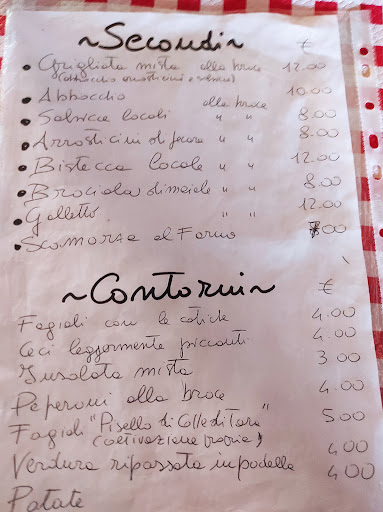 ~Secondi~ €
Grigliata mista alla brace 12.00
(abbacchio arrosticini e salsicce)
Abbacchio alla brace 10.00
Salsicce locali " " 8.00
Arrosticini di pecora " " 8.00
Bistecca locale " " 12.00
Braciola di maiale " " 8.00
Galletto " " 12.00
Scamorza al Forno 7.00
~Contorni~ €
Fagioli con le cotiche 4.00
Ceci leggermente piccanti 4.00
Insalata mista 3.00
Peperoni alla brace 4.00
Fagioli "Pisello di Colle di Tora" 5.00
(coltivazione propria)
Verdura ripassata in padella 4.00
Patate 4.00